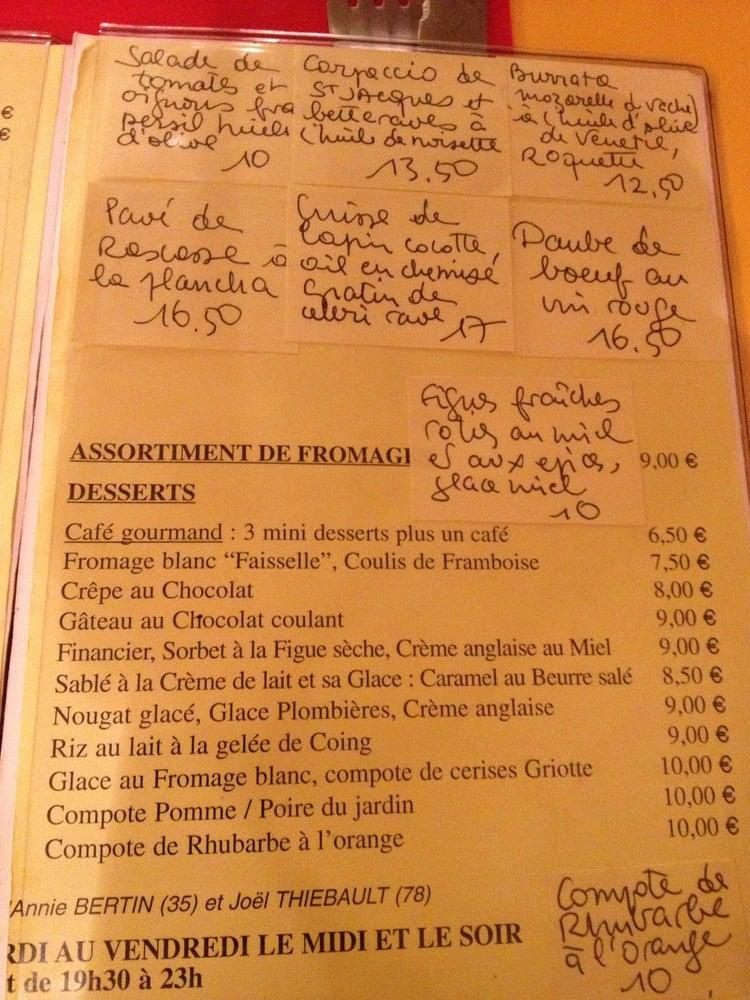 Salade de
tomates et
oignons
persil huile
d'olive
10
Carpaccio de
St Jacques et
betteraves à
l'huile de noisette
13.50
Burrata
mozarelle d vache
à l'huile d'olive
de Venetie,
Roquette
12,50
Pavé de
Rascasse à
la plancha
16.50
Cuisse de
lapin cocotte,
ail en chemise
Gratin de
céleri rave
17
Daube de
boeuf au
vin rouge
16.50
Figues fraîches
roties au miel
et aux epices,
glace miel
10
ASSORTIMENT DE FROMAGE 9,00 €
DESSERTS
Café gourmand : 3 mini desserts plus un café 6,50 €
Fromage blanc “Faisselle”, Coulis de Framboise 7,50 €
Crêpe au Chocolat 8,00 €
Gâteau au Chocolat coulant 9,00 €
Financier, Sorbet à la Figue sèche, Crème anglaise au Miel 9,00 €
Sablé à la Crème de lait et sa Glace : Caramel au Beurre salé 8,50 €
Nougat glacé, Glace Plombières, Crème anglaise 9,00 €
Riz au lait à la gelée de Coing 9,00 €
Glace au Fromage blanc, compote de cerises Griotte 10,00 €
Compote Pomme / Poire du jardin 10,00 €
Compote de Rhubarbe à l’orange 10,00 €
'Annie BERTIN (35) et Joël THIEBAULT (78)
RDI AU VENDREDI LE MIDI ET LE SOIR
t de 19h30 à 23h
Compote de
Rhubarbe
à l'orange
10
€
€